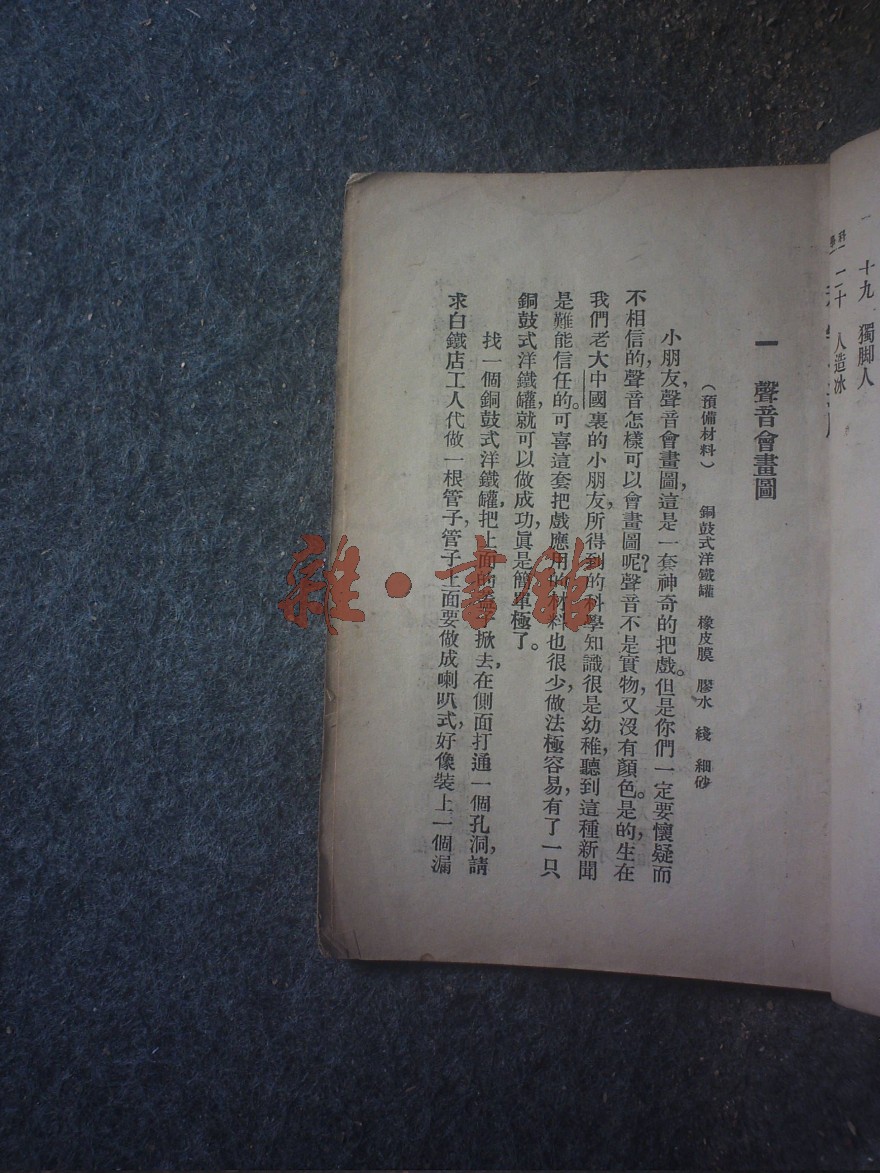 十九　獨脚人
二十　人造冰
一　聲音會畫圖
（預備材料）　銅鼓式洋鐵罐　橡皮膜　膠水　綫　細砂
小朋友，聲音會畫圖，這是一套神奇的把戲。但是你們一定要懷疑而
不相信的，聲音怎樣可以會畫圖呢？聲音不是實物，又沒有顏色。是的，生在
我們老大中國裏的小朋友，所得到的科學知識很是幼稚，聽到這種新聞
是難能信任的。可喜這套把戲應用的材料也很少，做法極容易，有了一只
銅鼓式洋鐵罐，就可以做成功，眞是簡單極了。
找一個銅鼓式洋鐵罐，把上面的掀去，在側面打通一個孔洞，請
求白鐵店工人代做一根管子，管子上面要做成喇叭式，好像裝上一個漏
雜·書館